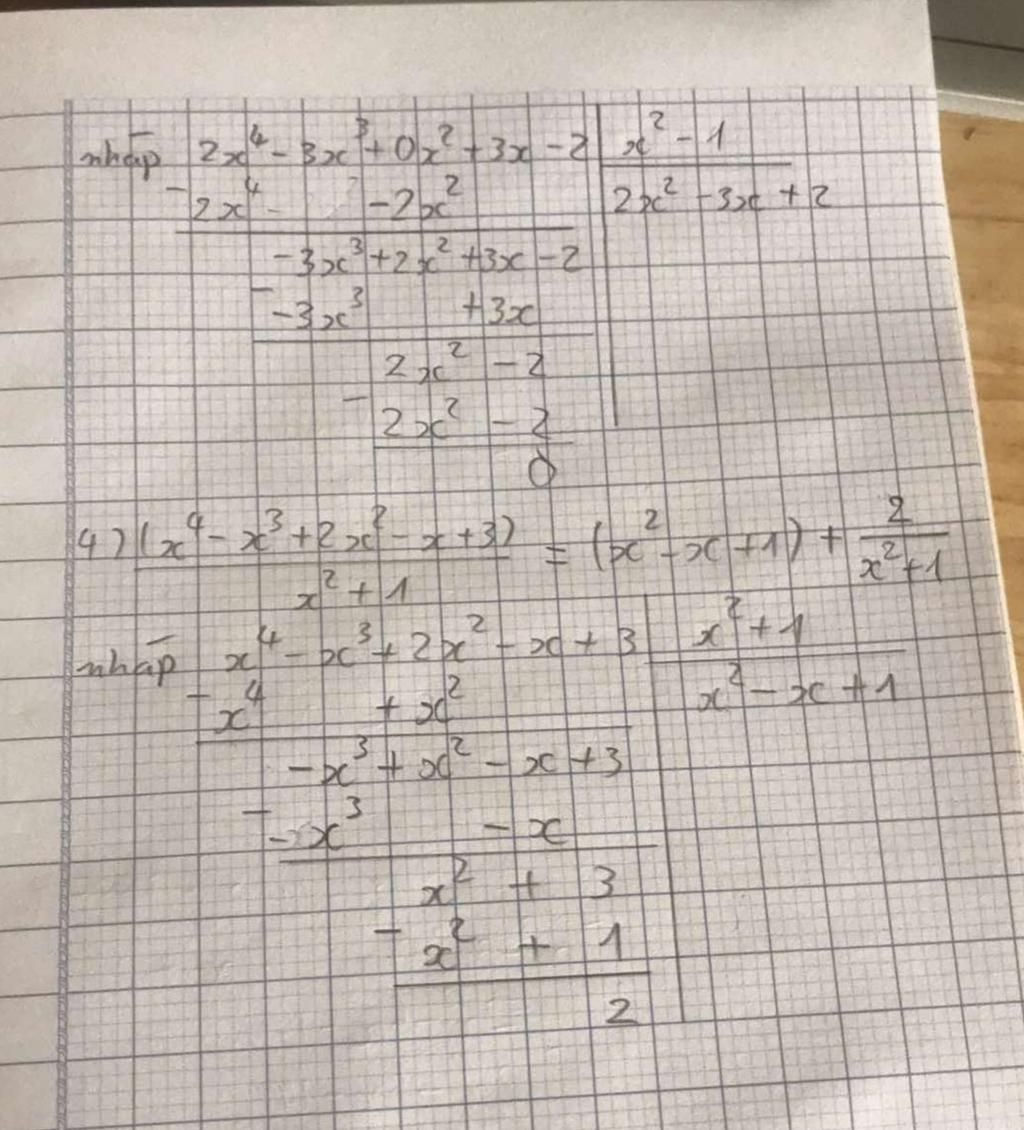 nháp 2x⁴ - 3x³ + 0x² + 3x - 2 | x² - 1
- 2x⁴ - -2x² | 2x² - 3x + 2
-3x³ + 2x² + 3x - 2
- -3x³ + 3x
2x² - 2
- 2x² - 2
0
4) (x⁴ - x³ + 2x² - x + 3) / x² + 1 = (x² - x + 1) + 2 / x² + 1
nháp x⁴ - x³ + 2x² - x + 3 | x² + 1
- x⁴ + x² | x² - x + 1
-x³ + x² - x + 3
- -x³ - x
x² + 3
- x² + 1
2